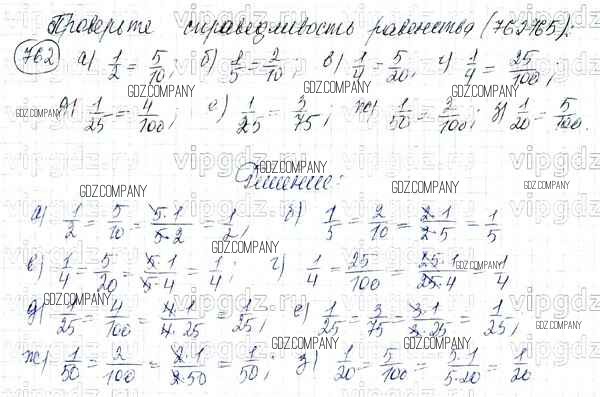 Проверьте справедливость равенства (762-765):
762 а) 1/2 = 5/10; б) 1/5 = 2/10; в) 1/4 = 5/20; г) 1/4 = 25/100;
д) 1/25 = 4/100; е) 1/25 = 3/75; ж) 1/50 = 2/100; з) 1/20 = 5/100.
Решение:
а) 1/2 = 5/10 = 5·1/5·2 = 1/2; б) 1/5 = 2/10 = 2·1/2·5 = 1/5
в) 1/4 = 5/20 = 5·1/5·4 = 1/4; г) 1/4 = 25/100 = 25·1/25·4 = 1/4
д) 1/25 = 4/100 = 4·1/4·25 = 1/25; е) 1/25 = 3/75 = 3·1/3·25 = 1/25;
ж) 1/50 = 2/100 = 2·1/2·50 = 1/50; з) 1/20 = 5/100 = 5·1/5·20 = 1/20
GDZ.COMPANY
vipgdz.ru